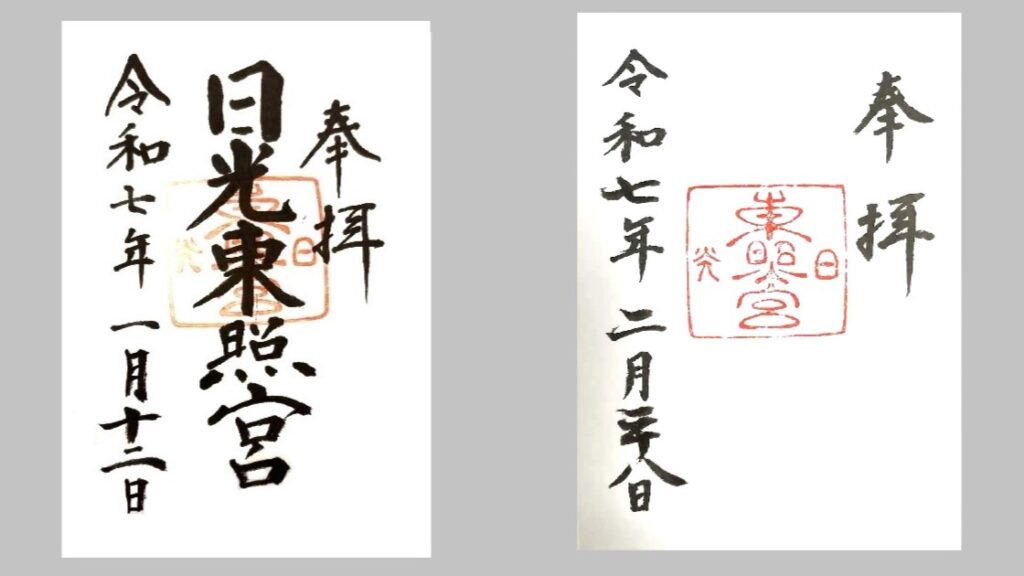 奉拝
日光東照宮
日
東照宮
光
令和七年 一月十二日
奉拝
日
東照宮
光
令和七年 二月二十八日